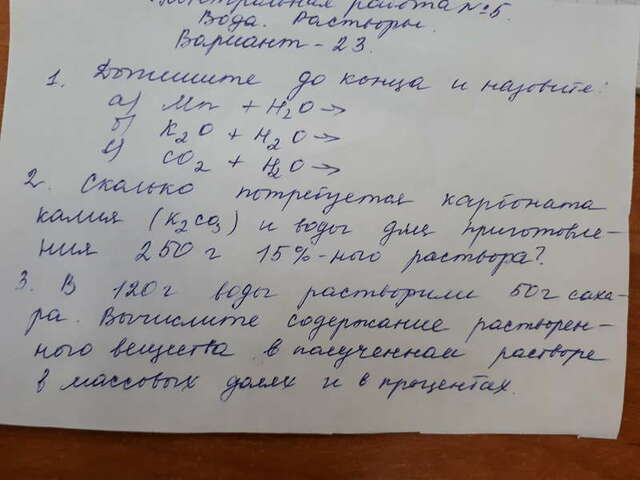 Контрольная работа №5.
Вода. Растворы.
Вариант - 23.
1. Допишите до конца и назовите:
а) Mn + H2O →
б) K2O + H2O →
в) CO2 + H2O →
2. Сколько потребуется карбоната
калия (K2CO3) и воды для приготовле-
ния 250 г 15%-ного раствора?
3. В 120 г воды растворили 50 г саха-
ра. Вычислите содержание растворен-
ного вещества в полученном растворе
в массовых долях и в процентах.